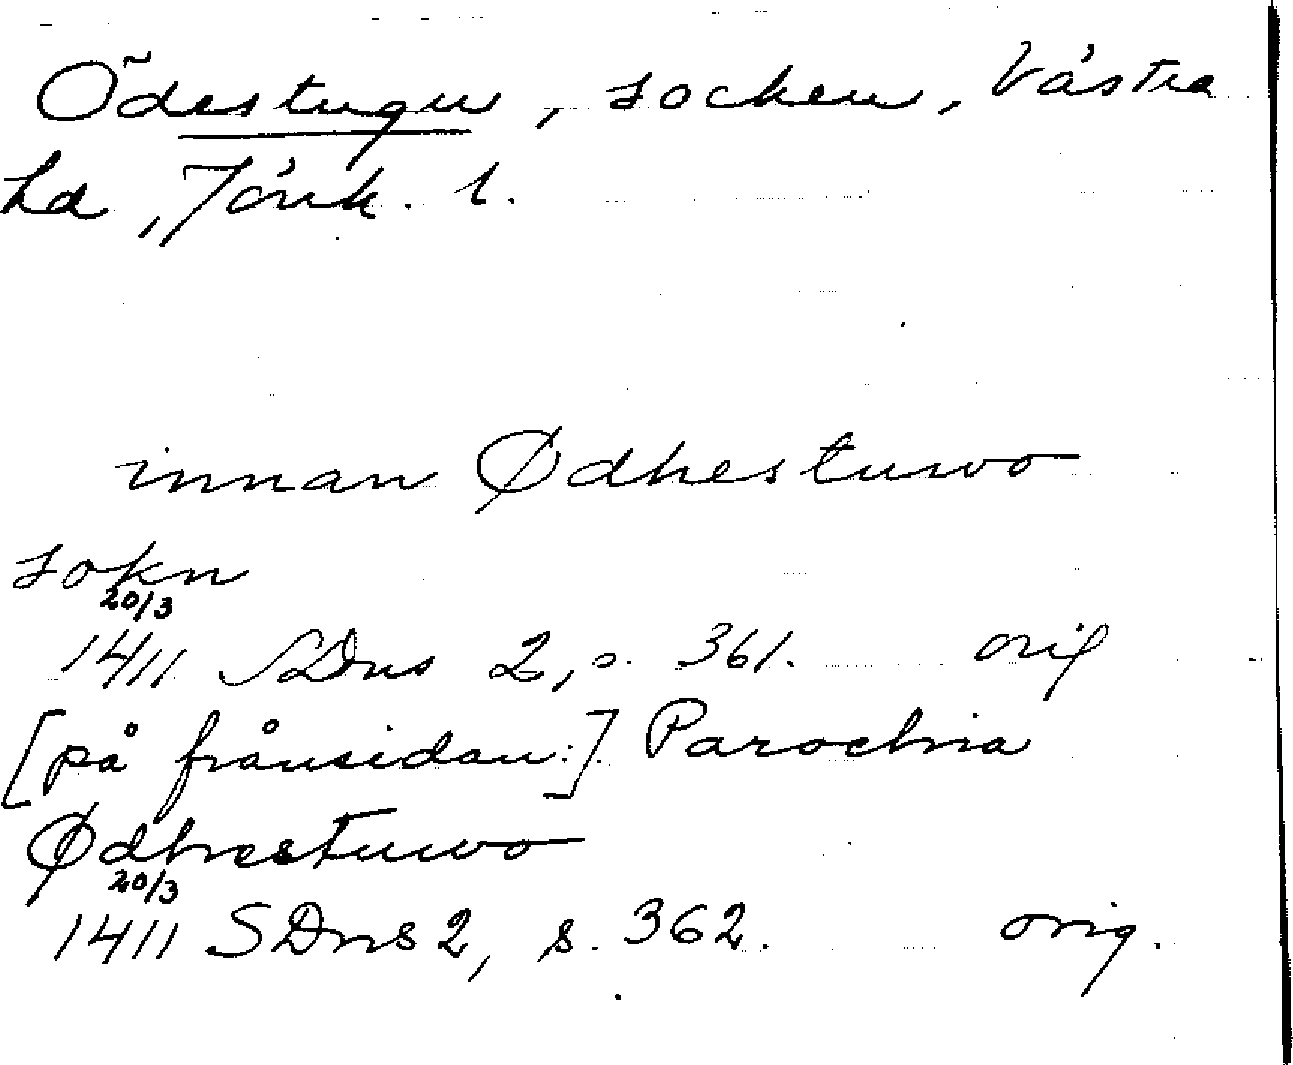 Ödestugu, socken, Västra
hd, Jönk. l.
innan Ødhestuwo
sokn
20/3
1411 SDns 2, s. 361. orig
[på frånsidan:] Parochia
Ødhestuwo
20/3
1411 SDns 2, s. 362. orig.